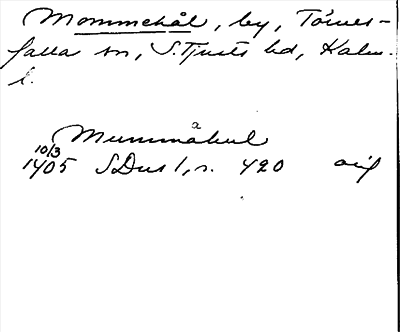 Mommehål, by, Törnes-
falla sn, S. Tjusts hd, Kalm.
l.
Mummåhul
10/3
1405 SDns 1, s. 420 orig